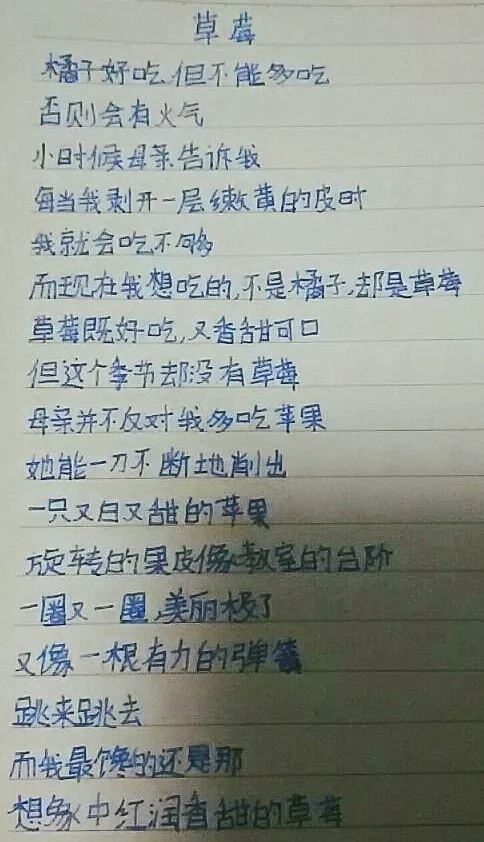 草莓
橘子好吃但不能多吃
否则会有火气
小时候母亲告诉我
每当我剥开一层嫩黄的皮时
我就会吃不够
而现在我想吃的,不是橘子,却是草莓
草莓既好吃,又香甜可口
但这个季节却没有草莓
母亲并不反对我多吃苹果
她能一刀不断地削出
一只又白又甜的苹果
旋转的果皮像教室的台阶
一圈又一圈,美丽极了
又像一根有力的弹簧
跳来跳去
而我最馋的还是那
想象中红润香甜的草莓